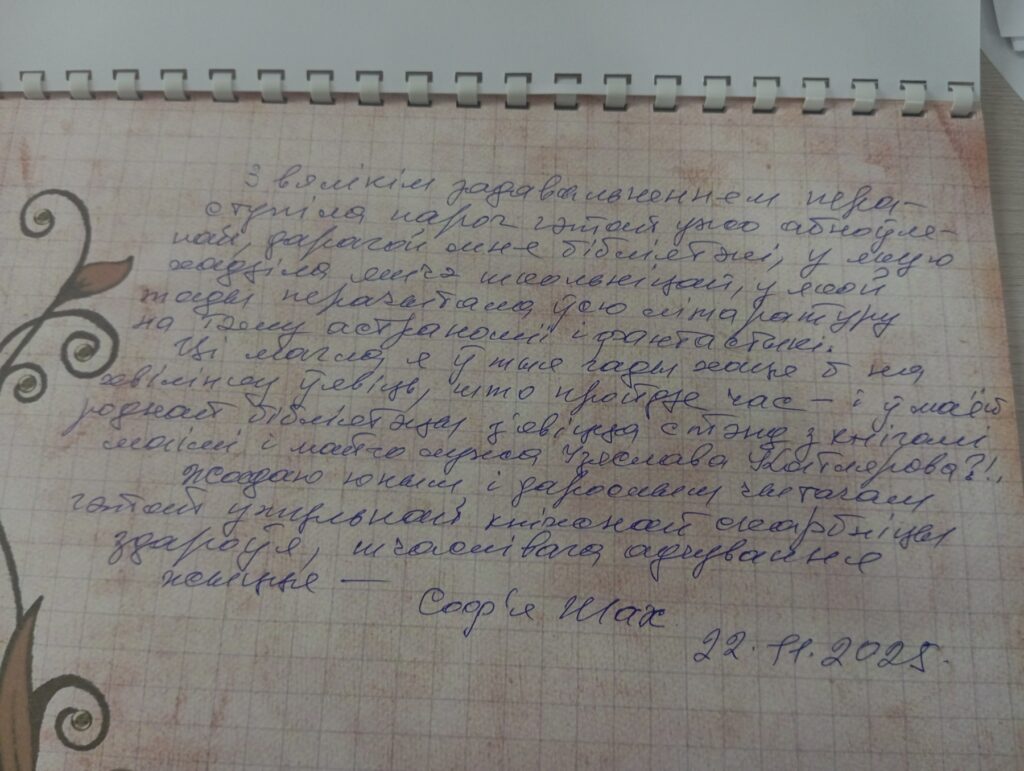 З вялікім задавальненнем пера-
ступіла парог гэтай ужо абноўле-
най, дарагой мне бібліятэкі, у якую
хадзіла яшчэ школьніцай, у якой
тады перачытала ўсю літаратуру
на тэму астраноміі і фантастыкі.
Ці магла я ў тыя гады хаця б на
хвілінку ўявіць, што пройдзе час – і ў маёй
роднай бібліятэцы з'явіцца стэнд з кнігамі
маімі і майго мужа Ізяслава Катлярова?!.
Жадаю юным і дарослым чытачам
гэтай утульнай кніжнай скарбніцы
здароўя, шчаслівага адчування
жыцця —
Соф'я Шах
22.11.2025.